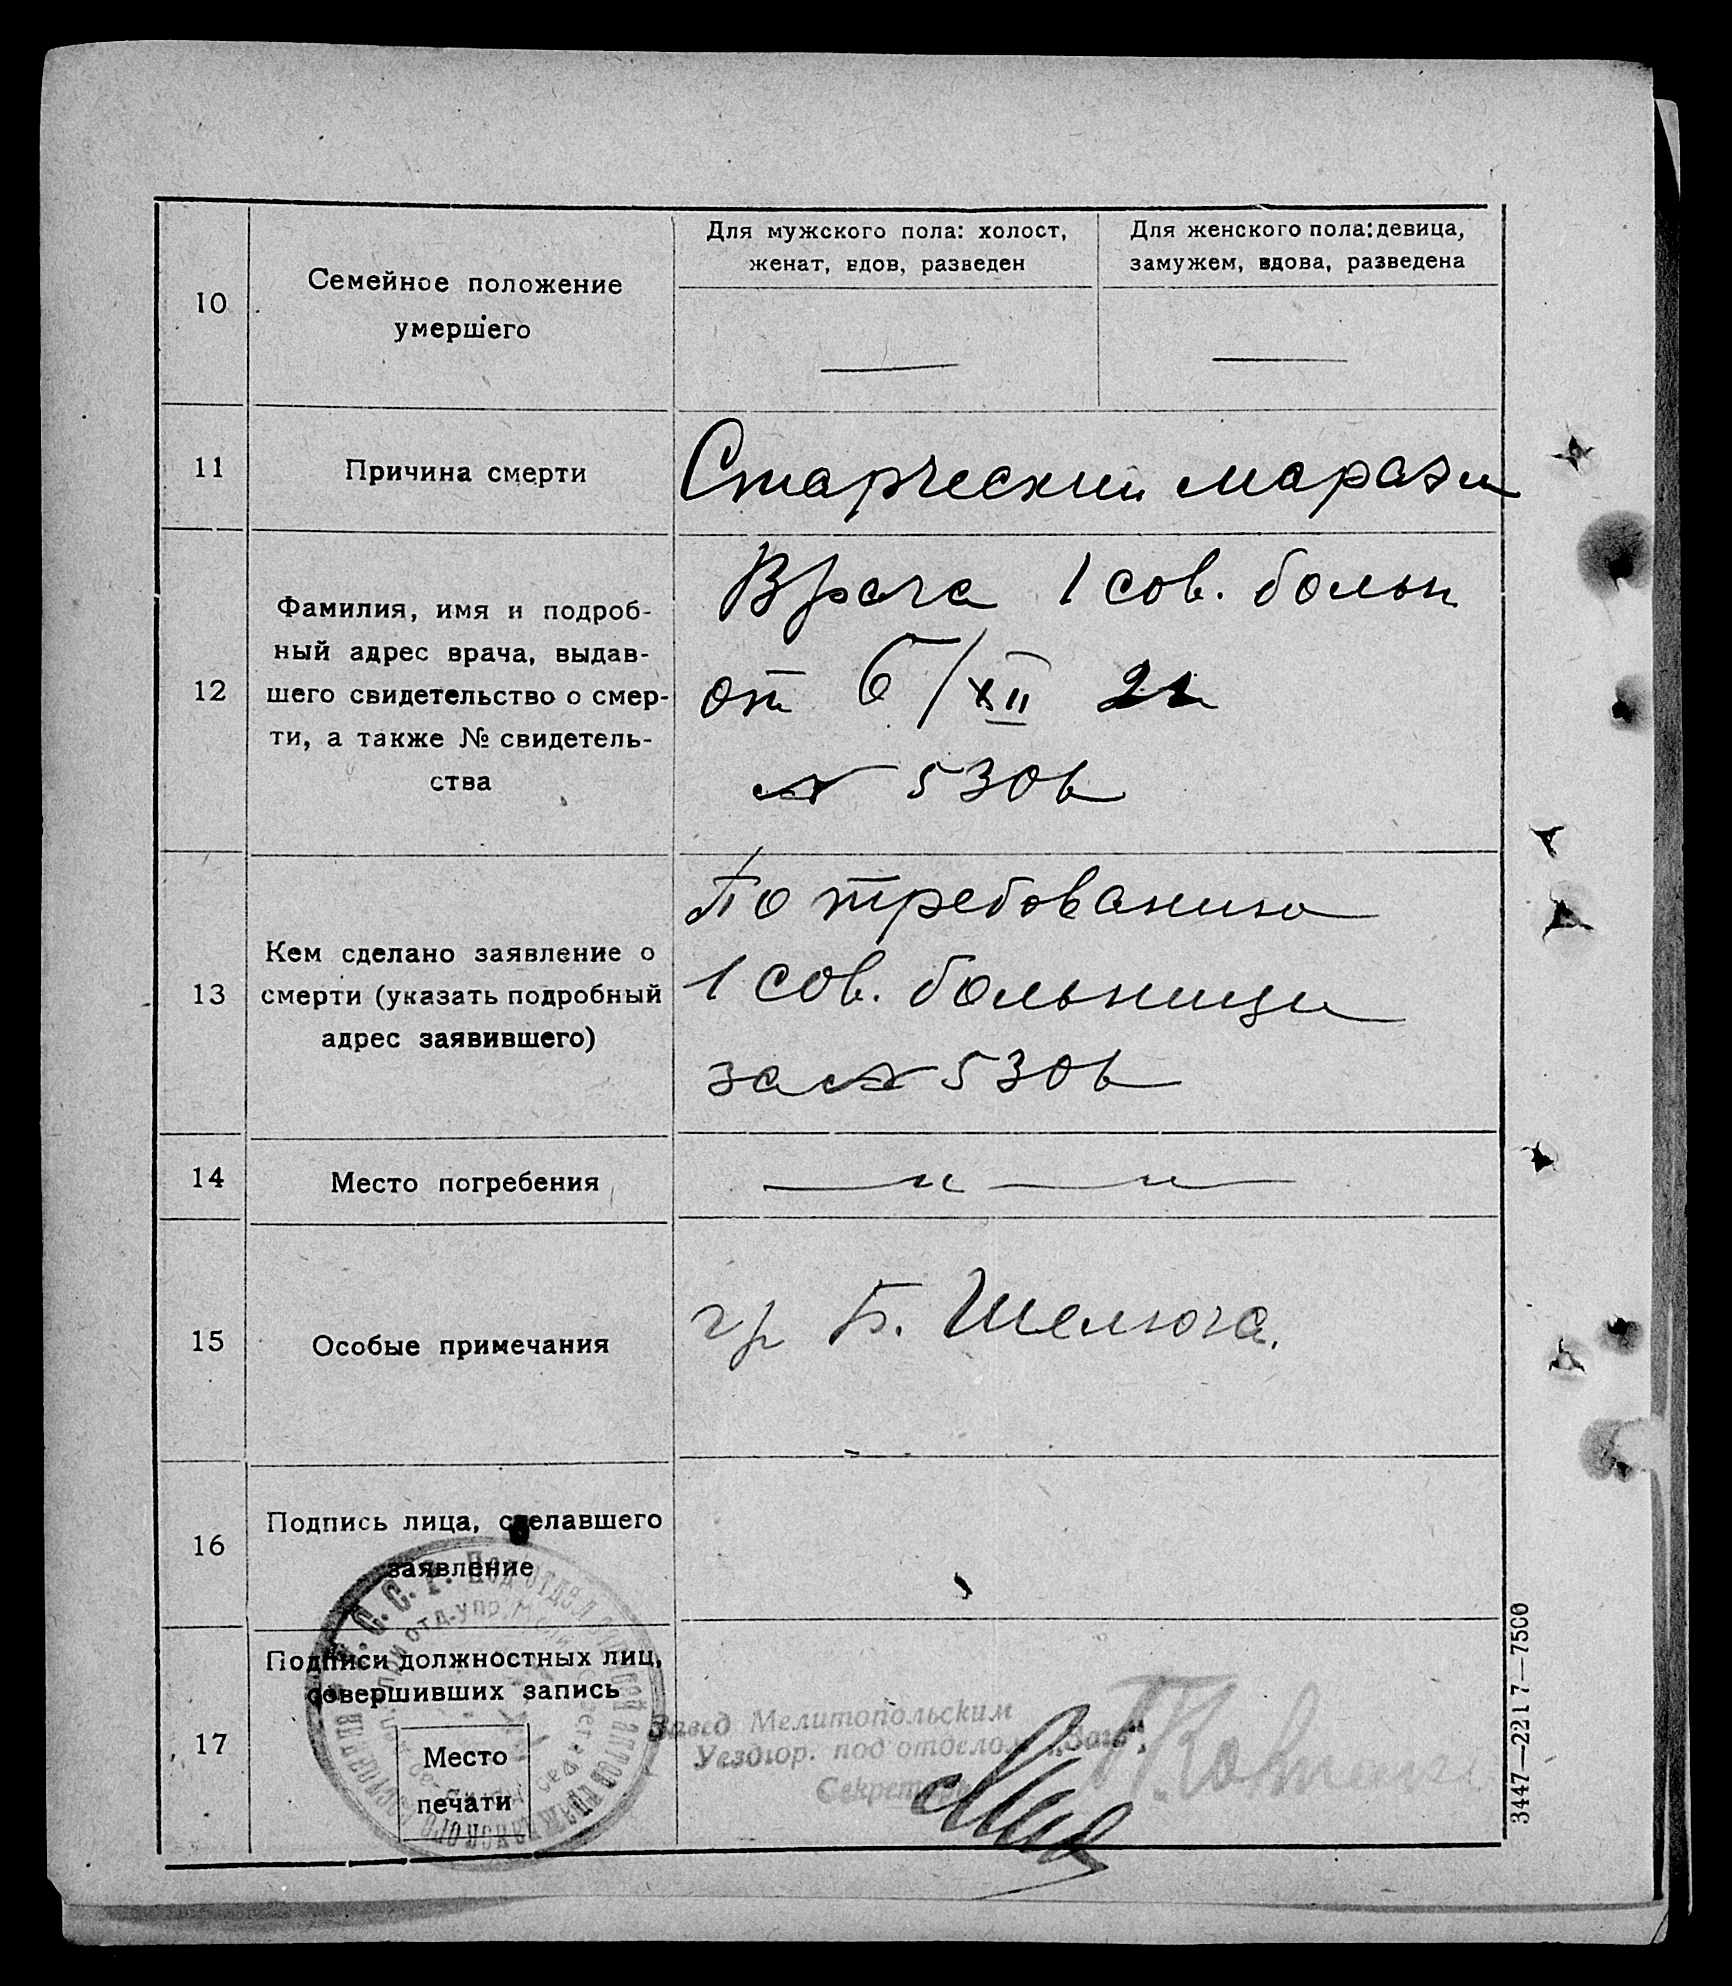 10
Семейное положение
умершего
Для мужского пола: холост,
женат, вдов, разведен
Для женского пола: девица,
замужем, вдова, разведена
11
Причина смерти
Старческий маразм
12
Фамилия, имя и подроб-
ный адрес врача, выдав-
шего свидетельство о смер-
ти, а также № свидетель-
ства
Врача 1 сов. больн
от 6/XII
№ 5306
13
Кем сделано заявление о
смерти (указать подробный
адрес заявившего)
По требованию
1 сов. больницы
за № 5306
14
Место погребения
— " — " —
15
Особые примечания
гр Б. Шелюга.
16
Подпись лица, сделавшего
заявление
17
Подписи должностных лиц,
совершивших запись
Место
печати
Завед Мелитопольским
Уездгор. подотделом „Загс“
Секретарь
3447—2217—7500